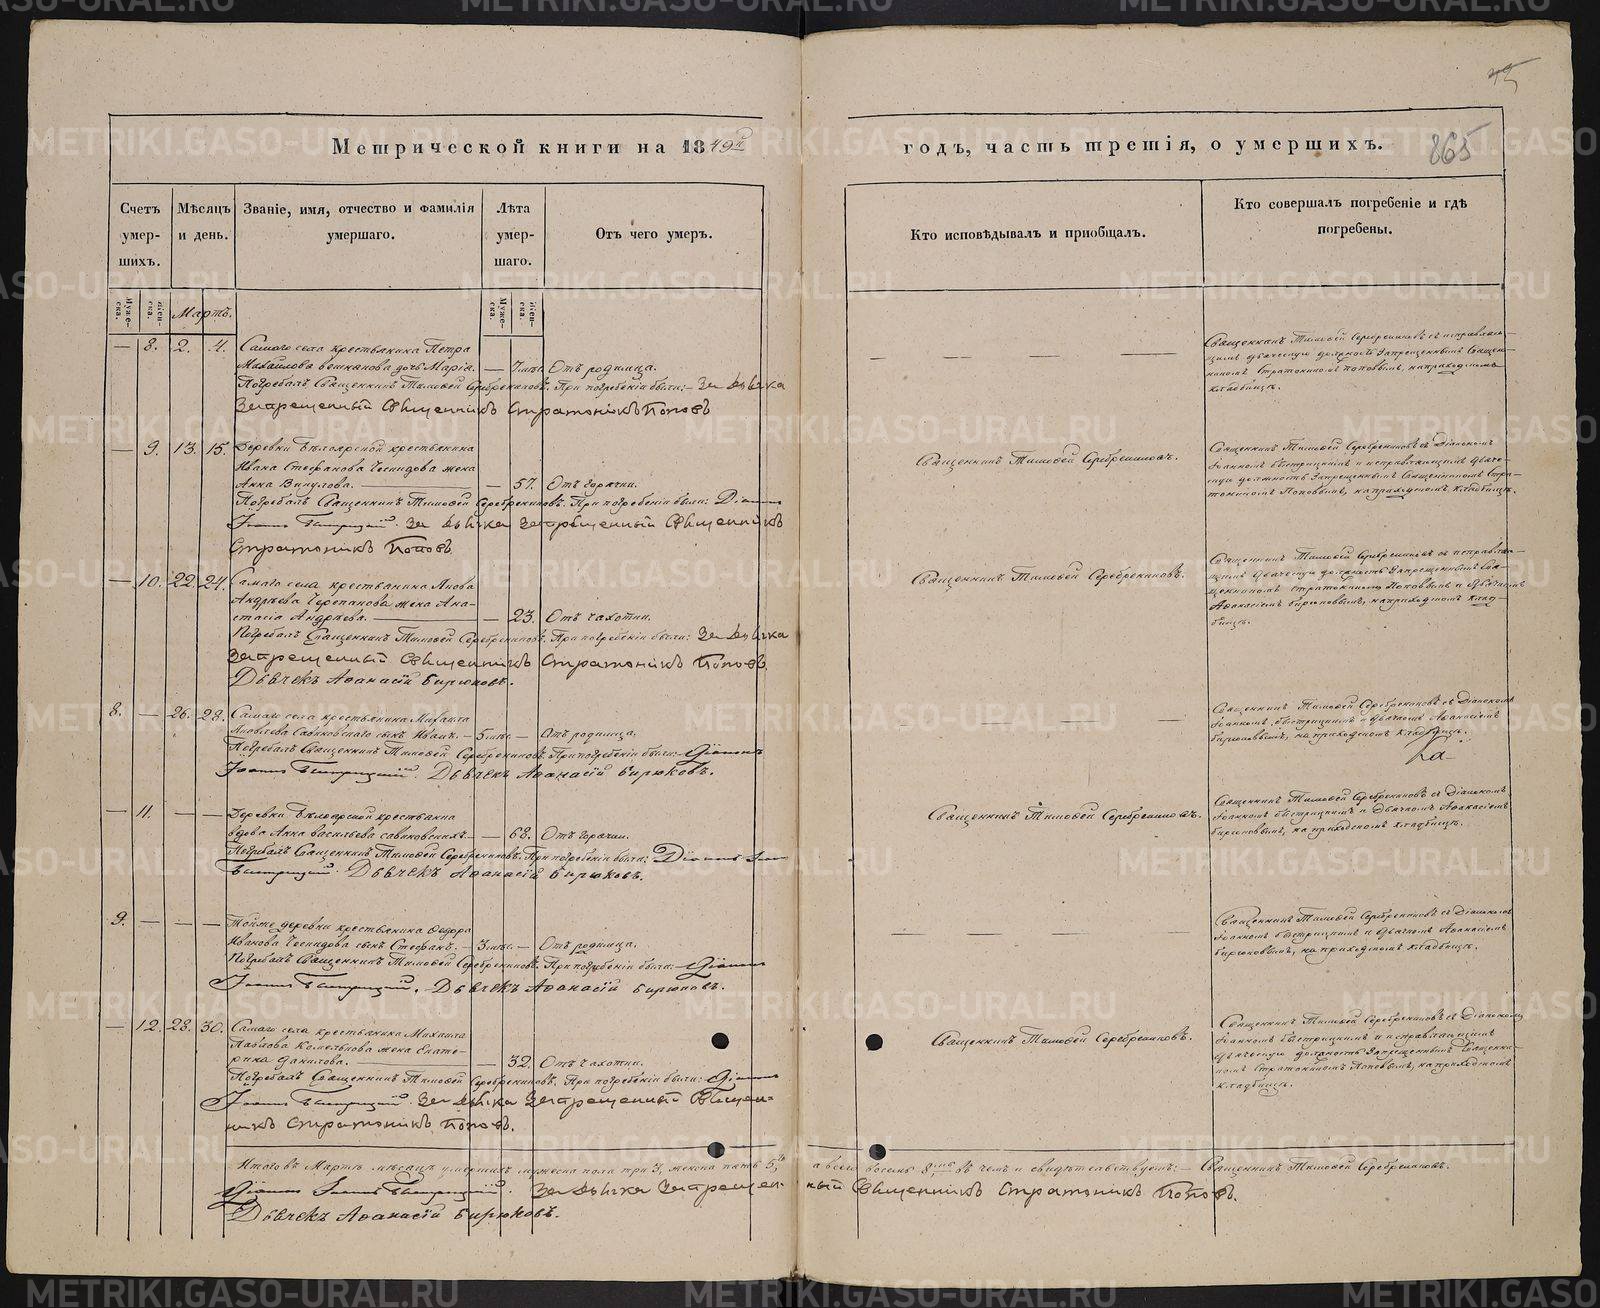 45
Метрической книги на 1849й годъ, часть третія, о умершихъ. 865
Счетъ умер-шихъ.
Мѣсяцъ и день.
Званіе, имя, отчество и фамилія умершаго.
Лѣта умер-шаго.
Отъ чего умеръ.
Кто исповѣдывалъ и приобщалъ.
Кто совершалъ погребеніе и гдѣ погребены.
Муже-ска. Жен-ска. Мартъ. Муже-ска. Жен-ска.
— 8. 2. 4. Самаго села крестьянина Петра
Михайлова дочь Марія. — 7 мѣс. Отъ родимца.
Погребалъ Священникъ Тимофей Серебренниковъ. При погребеніи были: — За дьячка
Запрещенный Священникъ Стратоникъ Поповъ
Священникъ Тимофей Серебренниковъ съ исправляю-
щимъ дьяческую должность Запрещеннымъ Священ-
никомъ Стратоникомъ Поповымъ, на приходскомъ
кладбищѣ.
— 9. 13. 15. Деревни Бѣлоярской крестьянина
Ивана Стефанова жена
Анна — 57. Отъ горячки.
Погребалъ Священникъ Тимофей Серебренниковъ. При погребеніи были: Діаконъ
Іоаннъ Быстрицкій. За дьячка Запрещенный Священникъ
Стратоникъ Поповъ
Священникъ Тимофей Серебренниковъ.
Священникъ Тимофей Серебренниковъ съ Діакономъ
Іоанномъ Быстрицкимъ и исправляющимъ дьяче-
скую должность Запрещеннымъ Священникомъ Стра-
тоникомъ Поповымъ, на приходскомъ кладбищѣ.
— 10. 22. 24. Самаго села крестьянина Якова
Андреева Черепанова жена Ана-
стасія Андреева. — 23. Отъ чахотки.
Погребалъ Священникъ Тимофей Серебренниковъ. При погребеніи были: За дьячка
Запрещенный Священникъ Стратоникъ Поповъ.
Дьячекъ Афанасій Бирюковъ.
Священникъ Тимофей Серебренниковъ.
Священникъ Тимофей Серебренниковъ съ исправляю-
щимъ дьяческую должность Запрещеннымъ Свя-
щенникомъ Стратоникомъ Поповымъ и дьячкомъ
Афанасіемъ Бирюковымъ, на приходскомъ клад-
бищѣ.
8. — 26. 28. Самаго села крестьянина Михаила
Яковлева сынъ Иванъ. — 5 мѣс. — Отъ родимца.
Погребалъ Священникъ Тимофей Серебренниковъ. При погребеніи были: Діаконъ
Іоаннъ Быстрицкій. Дьячекъ Афанасій Бирюковъ.
Священникъ Тимофей Серебренниковъ съ Діакономъ
Іоанномъ Быстрицкимъ и дьячкомъ Афанасіемъ
Бирюковымъ, на приходскомъ кладбищѣ.
— 11. — — Деревни Бѣлоярской крестьянка
вдова Анна Васильева — 68. Отъ горячки.
Погребалъ Священникъ Тимофей Серебренниковъ. При погребеніи были: Діаконъ
Быстрицкій. Дьячекъ Афанасій Бирюковъ.
Священникъ Тимофей Серебренниковъ.
Священникъ Тимофей Серебренниковъ съ Діакономъ
Іоанномъ Быстрицкимъ и Дьячкомъ Афанасіемъ
Бирюковымъ, на приходскомъ кладбищѣ.
9. — — — Тойже деревни крестьянина Федора
Иванова сынъ Стефанъ. — 3 мѣс. — Отъ родимца.
Погребалъ Священникъ Тимофей Серебренниковъ. При погребеніи были: Діаконъ
Іоаннъ Быстрицкій. Дьячекъ Афанасій Бирюковъ.
Священникъ Тимофей Серебренниковъ съ Діакономъ
Іоанномъ Быстрицкимъ и дьячкомъ Афанасіемъ
Бирюковымъ, на приходскомъ кладбищѣ.
— 12. 28. 30. Самаго села крестьянина Михаила
Павлова жена Екате-
рина Данилова. — 32. Отъ чахотки.
Погребалъ Священникъ Тимофей Серебренниковъ. При погребеніи были: Діаконъ
Іоаннъ Быстрицкій. За дьячка Запрещенный Священ-
никъ Стратоникъ Поповъ.
Священникъ Тимофей Серебренниковъ.
Священникъ Тимофей Серебренниковъ съ Діакономъ
Іоанномъ Быстрицкимъ и исправляющимъ
дьяческую должность Запрещеннымъ Священни-
комъ Стратоникомъ Поповымъ, на приходскомъ
кладбищѣ.
Итого въ Мартѣ мѣсяцѣ умершихъ мужеска пола три 3, женска пять 5, а всего восемь 8, въ чемъ и свидѣтельствуемъ: — Священникъ Тимофей Серебренниковъ.
Діаконъ Іоаннъ Быстрицкій. За дьячка Запрещен-ный Священникъ Стратоникъ Поповъ.
Дьячекъ Афанасій Бирюковъ.
METRIKI.GASO-URAL.RU